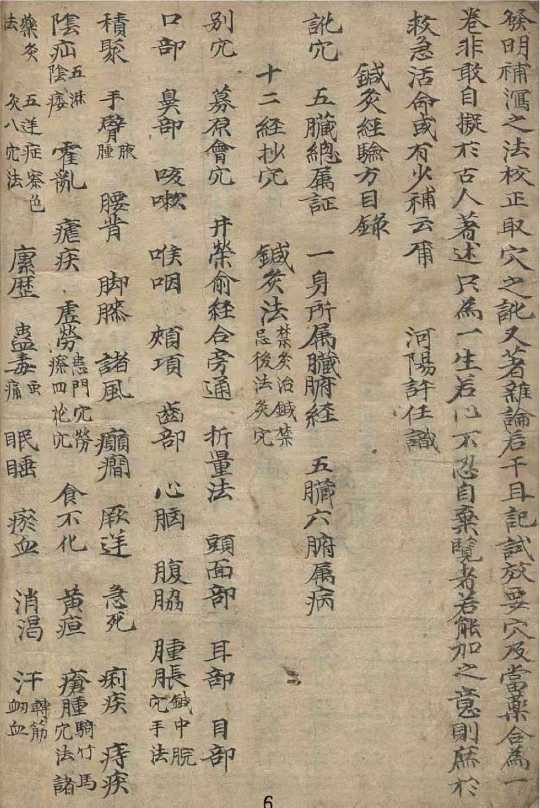 發明補瀉之法校正取穴之訛又著雜論若干且記試效要穴及當藥合為一
卷非敢自擬於古人著述只為一生苦心不忍自棄覽者若能加之意則庶於
救急活命或有少補云爾 河陽許任識
鍼灸經驗方目錄
訛穴 五臟總属証 一身所属臟腑経 五臟六腑属病
十二経抄穴 鍼灸法 禁灸治鍼禁忌後法灸穴
別穴 募原會穴 井荣俞経合旁通 折量法 頭面部 耳部 目部
口部 鼻部 咳嗽 喉咽 頰項 齒部 心胸 腹脇 腫脹 鍼中脘穴手法
積聚 手臂 腋腫 腰背 脚膝 諸風 癲癇 厥逆 急死 痢疾 痔疾
陰疝 五淋陰痿 霍亂 瘧疾 虛勞 患門穴勞瘵四花穴 食不化 黃疸 瘡腫 騎竹馬穴法諸
藥灸法 五逆症察色灸八穴法 瘰歴 蟲毒 虫痛 眠睡 瘀血 消渴 汗 轉筋衂血
6